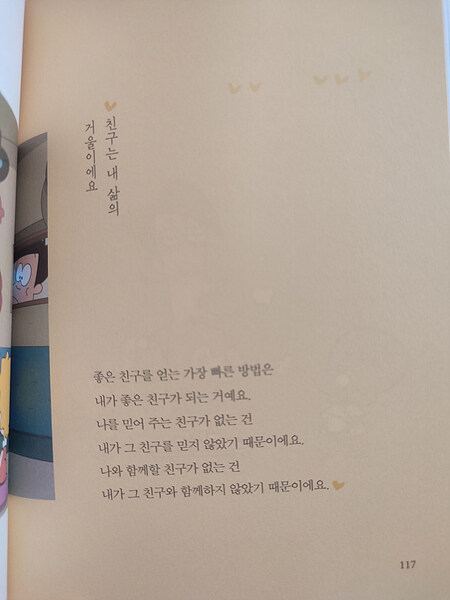 친구는 내 삶의
거울이에요
좋은 친구를 얻는 가장 빠른 방법은
내가 좋은 친구가 되는 거예요.
나를 믿어 주는 친구가 없는 건
내가 그 친구를 믿지 않았기 때문이에요.
나와 함께할 친구가 없는 건
내가 그 친구와 함께하지 않았기 때문이에요.
117